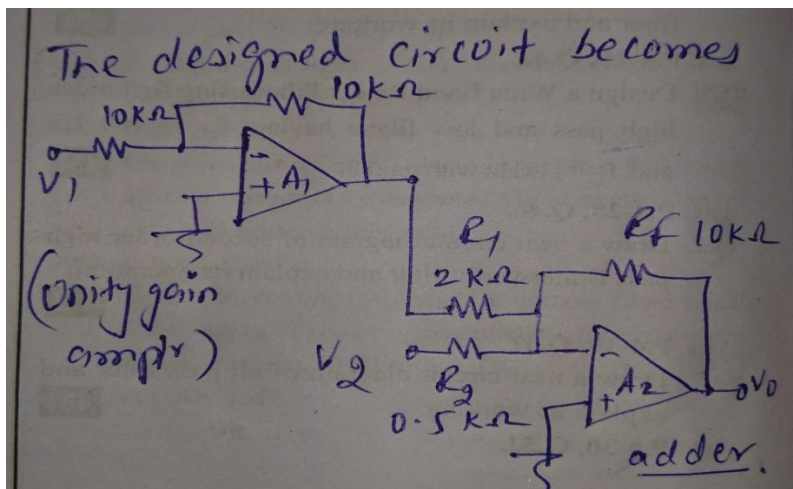 The designed circuit becomes
10KΩ
10KΩ
V1
-
+ A1
(Unity gain
amplr)
R1
2KΩ
Rf 10KΩ
V2
R2
0.5KΩ
-
+ A2
V0
adder.